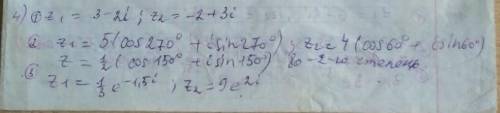 4) ① z₁ = 3-2i ; z₂ = -2+3i
② z₁ = 5(cos270° + isin270°) ; z₂ = 4(cos60° + isin60°)
z = ½(cos150° + isin150°) во -2-ю степень
③ z₁ = ⅓ e^-1,5i ; z₂ = 9e^2i